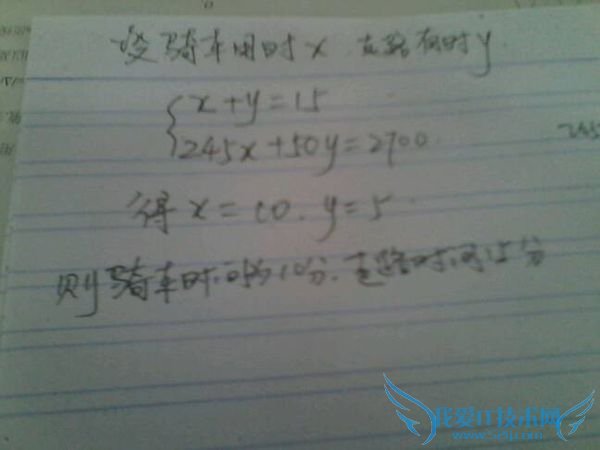 设骑车用时x 走路用时y
x+y=15
245x+50y=2700.
得x=10.y=5.
则骑车时间为10分.走路时间15分
245
我爱IT技术网
www.52ij.com